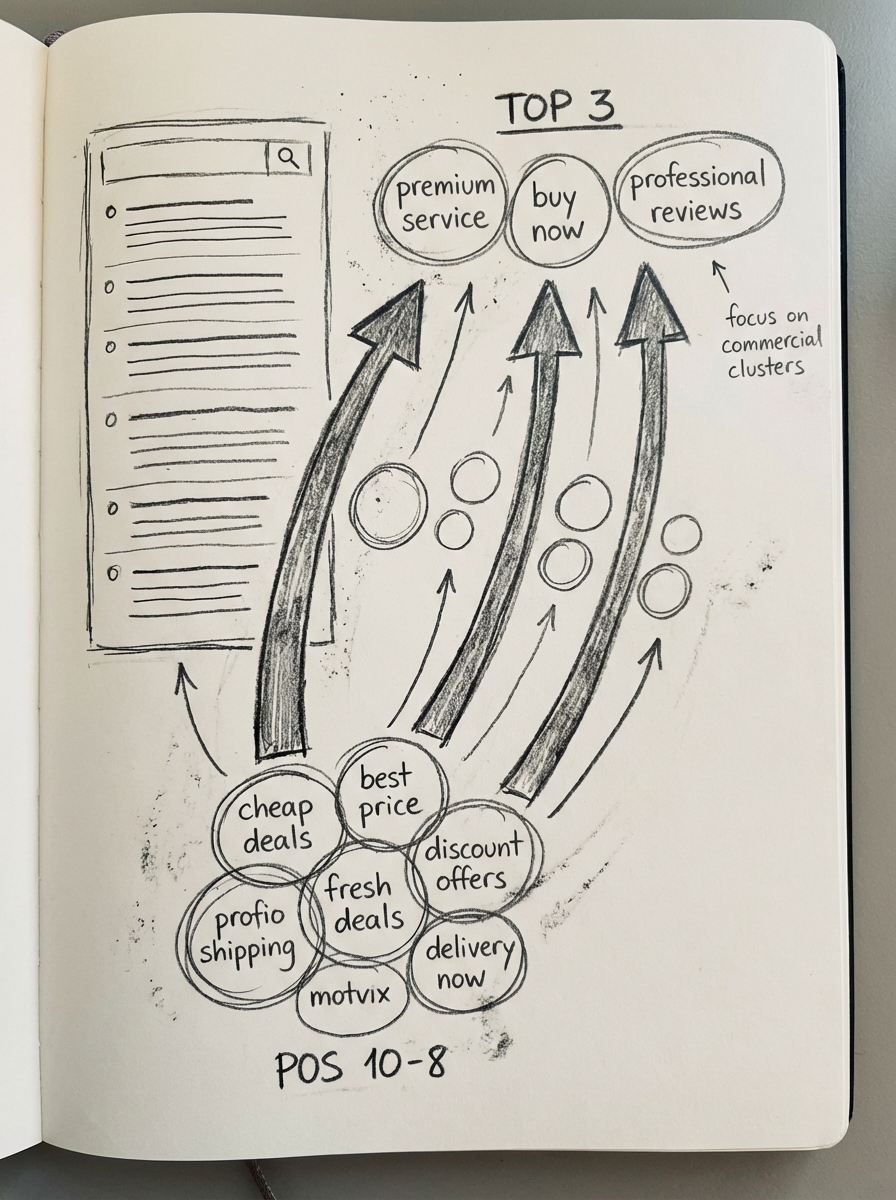 TOP 3
premium
service
buy
now
professional
reviews
focus on
commercial
clusters
cheap
deals
best
price
discount
offers
profio
shipping
fresh
deals
delivery
now
motvix
POS 10-8